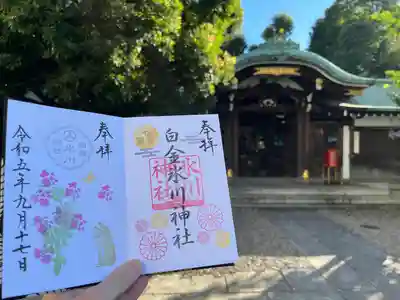 奉拝
白金氷川神社
氷川
神社
奉拝
令和五年九月十七日